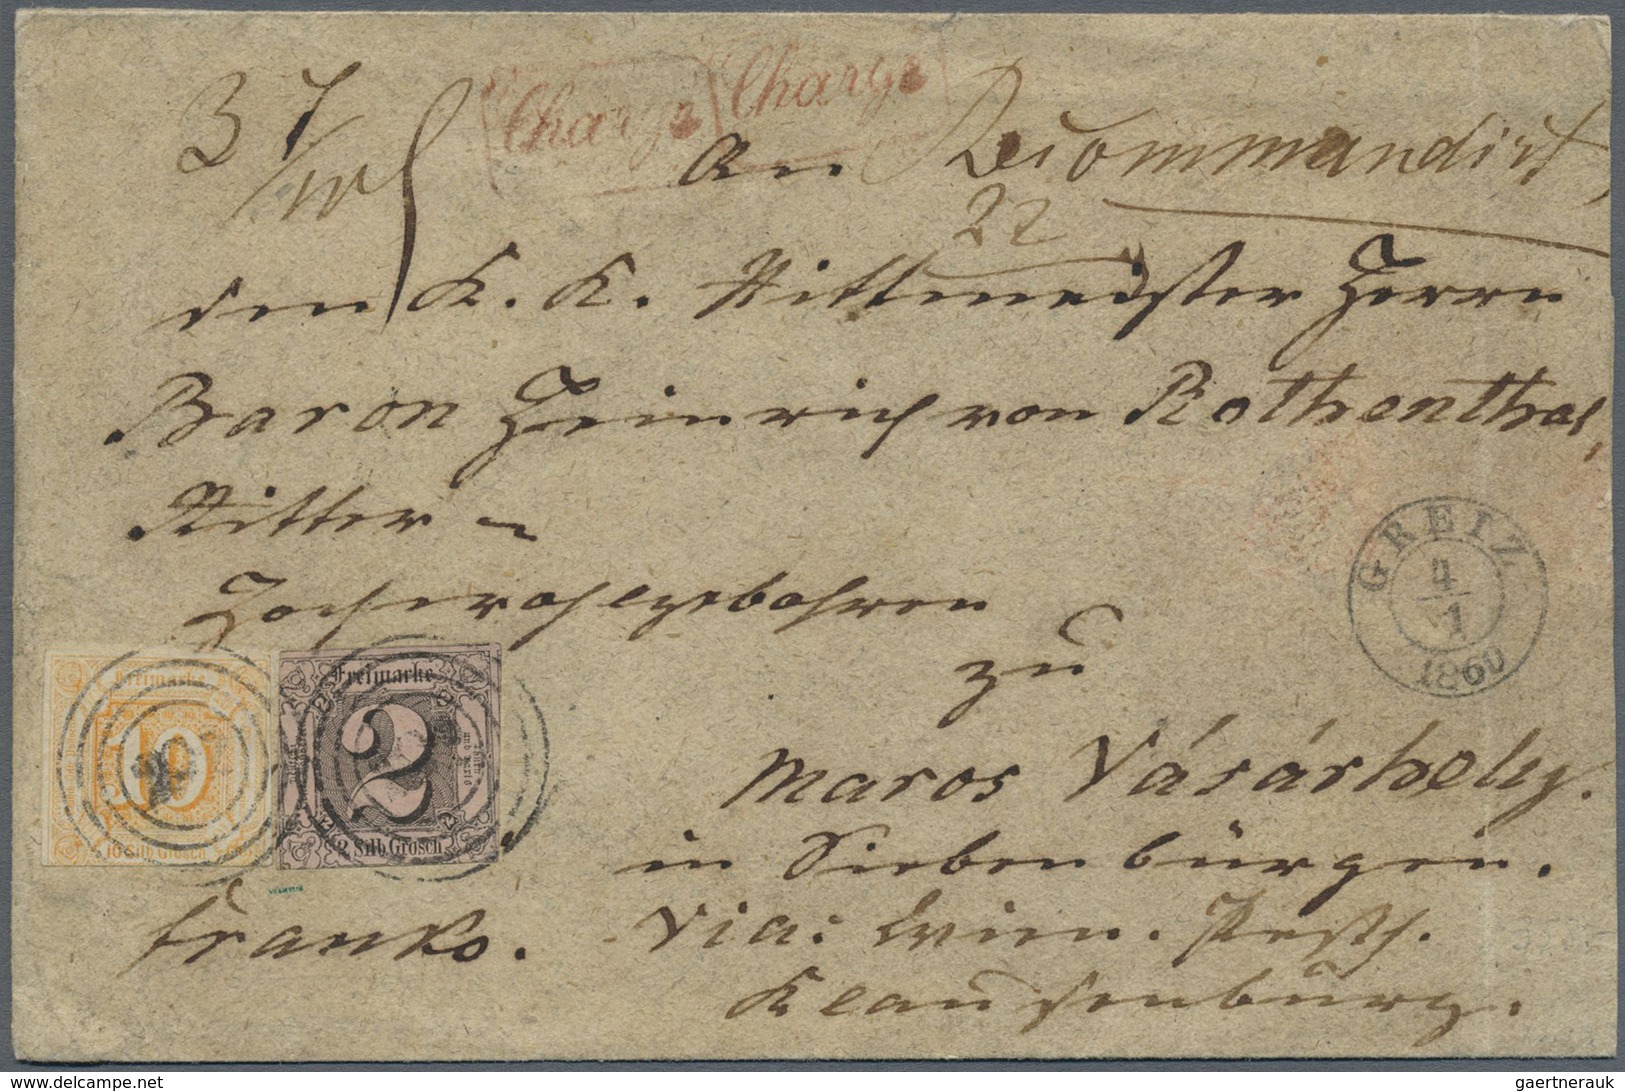 Chargé Chargé
37
An Recommandirt,
22
den K. K. Rittmeister Herrn
Baron Heinrich von Rothenthal,
Ritter –
Hochwohlgebohren
zu
Maros Vásárhely.
in Siebenbürgen.
Via: Wien. Pesth.
Klausenburg.
franko.
GREIZ
4/1
1860
Freimarke
10
10 Silb. Grosch.
Freimarke
2
2 Silb. Grosch.
gaertnerauk